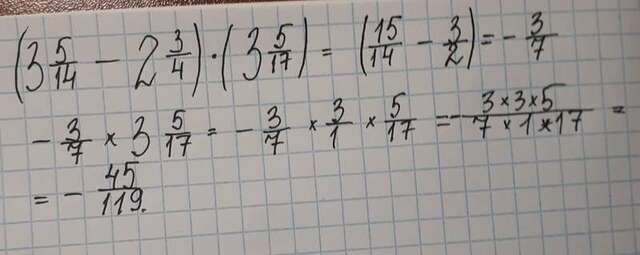 (3 5/14 - 2 3/4) · (3 5/17) = (15/14 - 3/2) = - 3/7
- 3/7 × 3 5/17 = - 3/7 × 3/1 × 5/17 = - 3×3×5/7×1×17 =
= - 45/119.